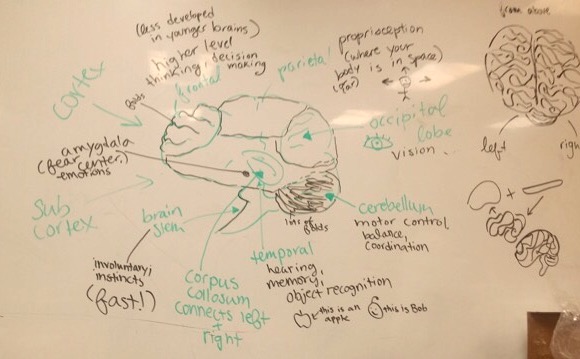 from above
(less developed
in younger brains)
higher level
thinking, decision
making
frontal
parietal
proprioception
(where your
body is in space)
(far)
cortex
folds
amygdala
(fear center,)
emotions
occipital
lobe
vision
left
right
sub
cortex
brain
stem
lots of
folds
cerebellum
motor control,
balance,
coordination
involuntary,
instincts
(fast!)
corpus
collosum
connects left
+
right
temporal
hearing,
memory,
object recognition
this is an
apple
this is Bob
+